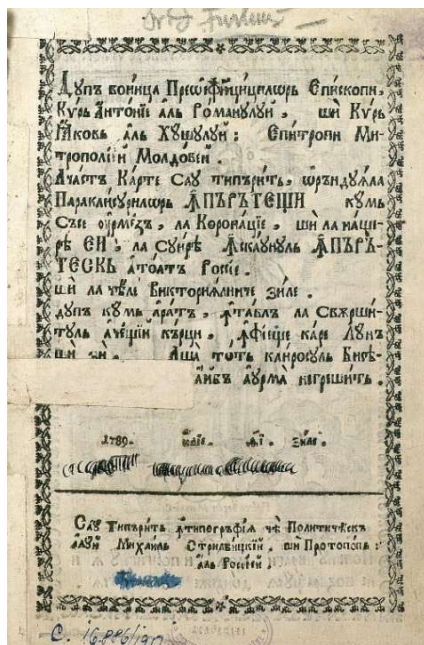 Дупъ воинца Преѡсфинцицилѡръ Епископи,
Кѵръ Антѡніе аль Романулуй, ши Кѵръ
Іаковъ аль Хушулуй: Епитропи Ми-
трополіій Молдовей.
Ачастъ Карте сау типъритъ, ѡръндуѧла
Параклисурилѡръ ꙞПЪРЪТЕЩИ кумъ
Съсе ѹрмѣзъ, ла Коронаціе, ши ла нащи-
рѣ ЕИ, ла Суирѣ Ꙟскаунулъ ꙞПЪРЪ-
ТЕСКЪ атоатъ Россіе.
ши ла челе Викторіѧлниче зиле.
дупъ кумъ аратъ, Ꙟтабла ла Свѫрши-
тулъ ачещіи кърци, Ꙟфіеще каре Лунъ
ши зи. Аша тотъ клиросулъ Бисѣ-
айбъ аурма негрешитъ.
1789. зиле.
Сау Типъритъ Ꙟтипографіѧ чѣ Политичѣскъ
алуй Михаилъ Стрилбицкій, ши Протопопъ:
аль Россіей
С. 16.886/1917